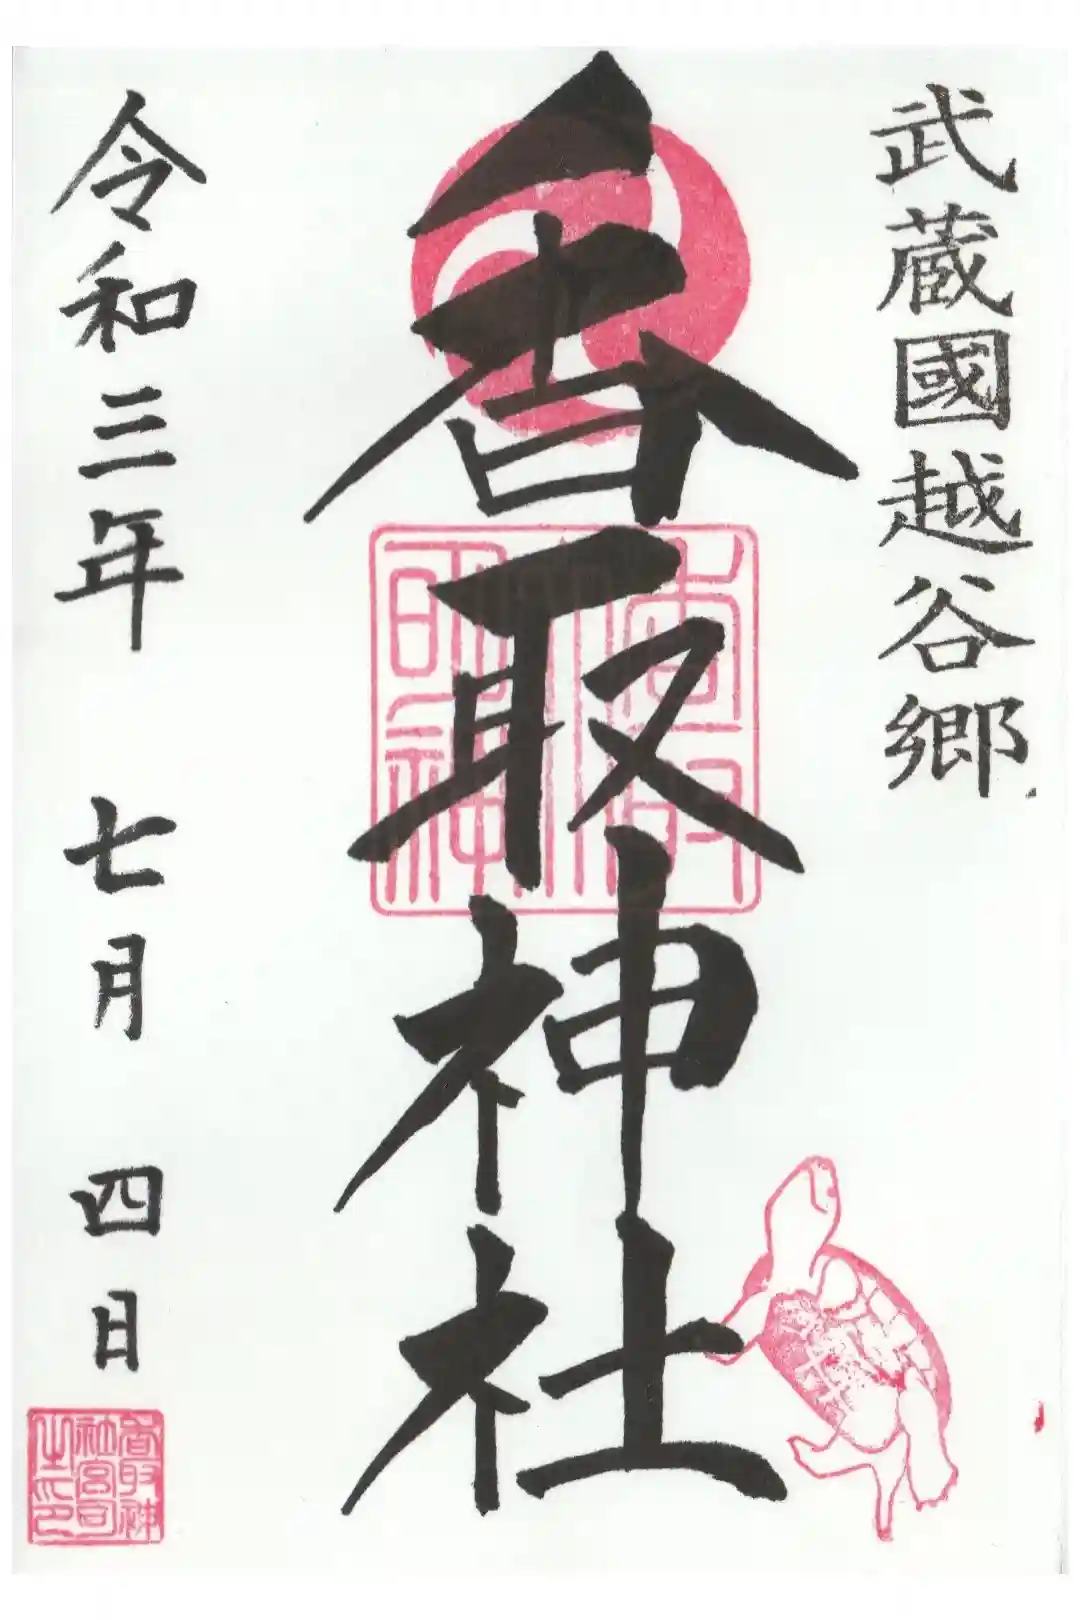 武蔵國越谷郷
香取神社
令和三年 七月 四日
香取神
社宮司
之印